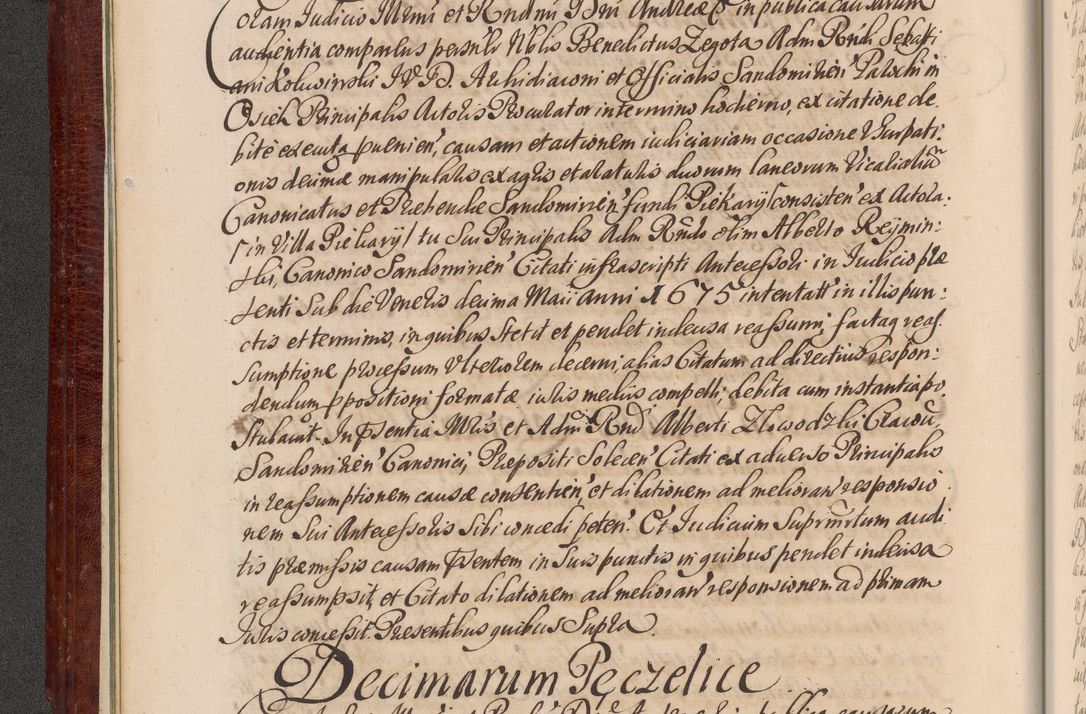 Coram Iudicio Illmi et Rndmi Dni Andreæ in publica causarum
audientia comparens personlr Nblis Benedictus Zegota Adm Rndi Sebasti
ani Kolwinski IVD. Archidiaconi et Officialis Sandomirien' Parochi in
Osiek Principalis Actoris Procurator in termino hodierno, ex citatione de
bite executa puenien', causam et actionem iudiciariam occasione Vsurpati:
onis decimæ manipularis ex agris et aratatis duorum laneorum Vicaliatu
Canonicatus et Præbendæ Sandomirien' fundi Piekary/consisten' ex Actora:
/in Villa Piekary/ tu Sui Principalis Adm Rndo olim Alberto Reymin:
ski, Canonico Sandomirien' Citati infrascripti Antecessori in Iudicio præ
senti Sub die Veneris decima Maii anni 1675 intentatt in illis pun:
ctis et terminis, in quibus stetit et pendet indecisa reassumi, factaq reas
sumptione processum Vlteriorem decerni, alias Citatum ad directius respon:
dendum ppositioni formatæ iuris mediis compelli, debita cum instantia po
stulavit. In Psentia Illris et Adm Rnd Alberti Zlowodzki Cracou',
Sandomirien' Canonici, Præpositi Solecen' Citati ex adverso Principalis
in reassumptionem causæ consentien', et dilationem ad melioran' responsio
nem Sui Antecessoris Sibi concedi peten'. Et Iudicium Supranrtum audi
tis præmissis causam Psentem in suis punctis in quibus pendet indecisa
reassumpsit, et Citato dilationem ad melioran' responsionem ad primam
Iuris concessit. Præsentibus quibus Supra.
Decimarum Pęczelice